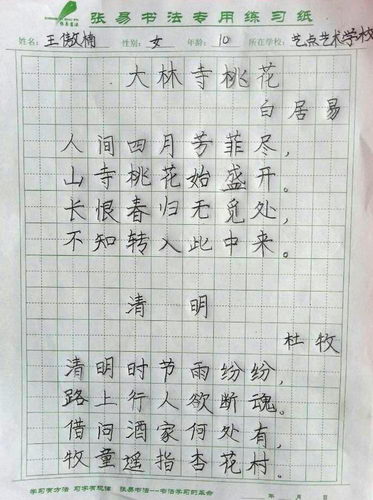 张易书法专用练习纸
姓名: 王傲楠 性别: 女 年龄: 10 所在学校: 艺点艺术学校
大林寺桃花
白居易
人间四月芳菲尽,
山寺桃花始盛开。
长恨春归无觅处,
不知转入此中来。
清明
杜牧
清明时节雨纷纷,
路上行人欲断魂。
借问酒家何处有,
牧童遥指杏花村。
学习有方法 习字有规律 张易书法——书法学习的革命 年 月 日